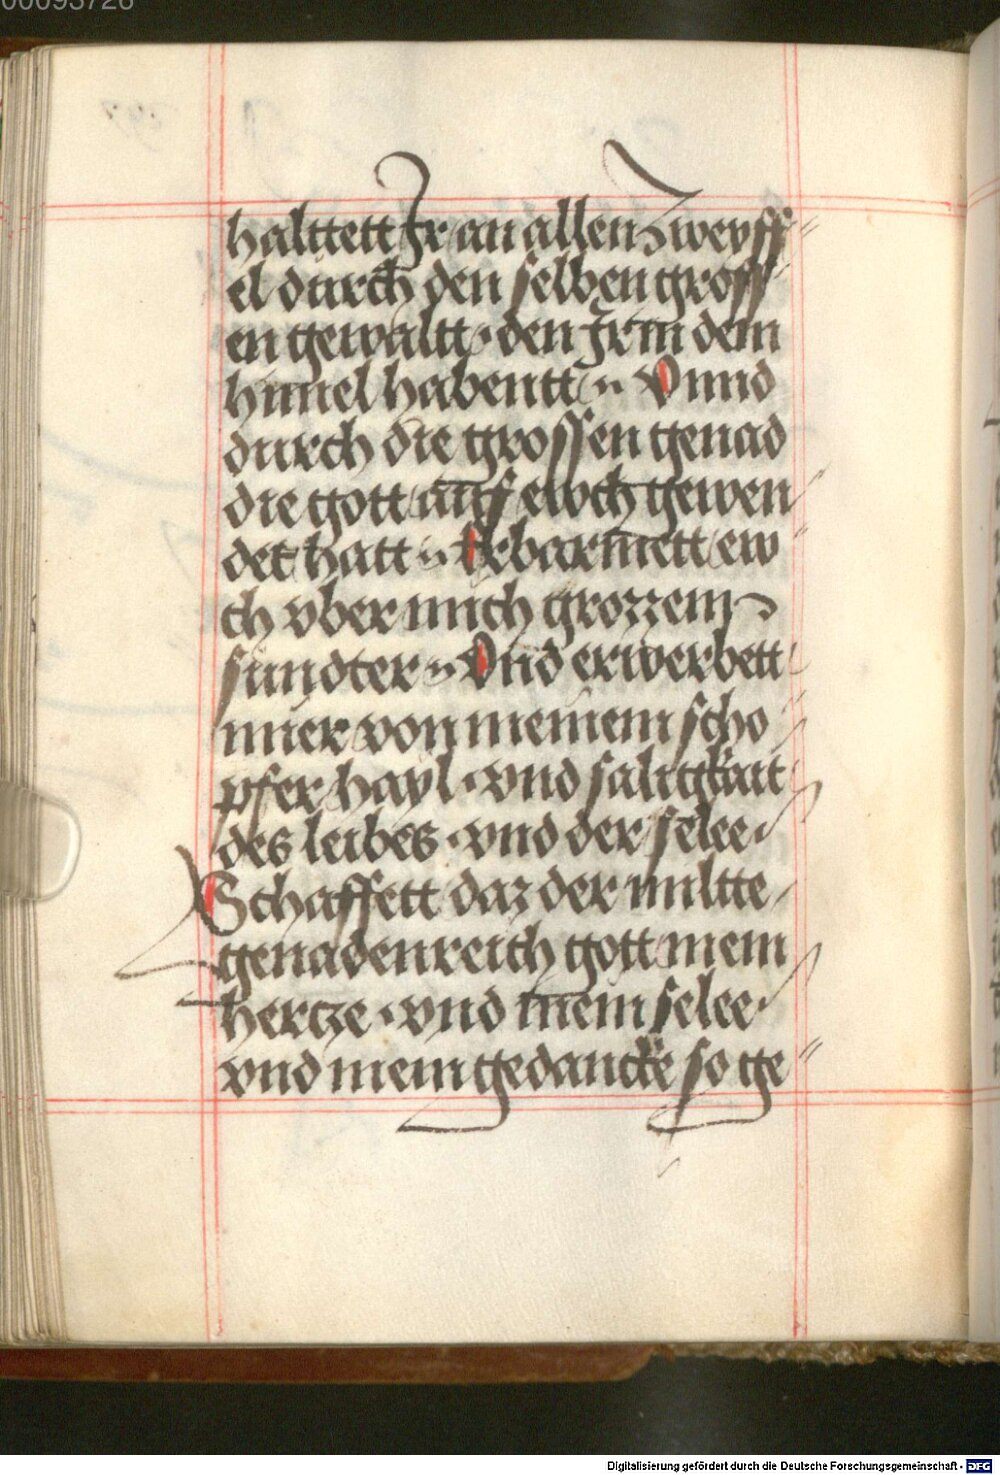 00093726
halttett Ir an allen zweyff
el durch den selben gross
en gewaltt · den Ir in dem
himel habentt ·· Vnnd
durch die grossen genad
die gott auf ewch gewen
det hatt ·· Erbarmett ew
ch vber mich grozzem
sundter ·· Vnd erwerbett
mier von meinem scho
pfer hayl · vnd saligkait
des leibes · vnd der selee ·
Schaffett daz der miltte
genadenreich gott mein
hercze · vnd mein selee ·
vnd mein gedancke so ge
Digitalisierung gefördert durch die Deutsche Forschungsgemeinschaft - DFG